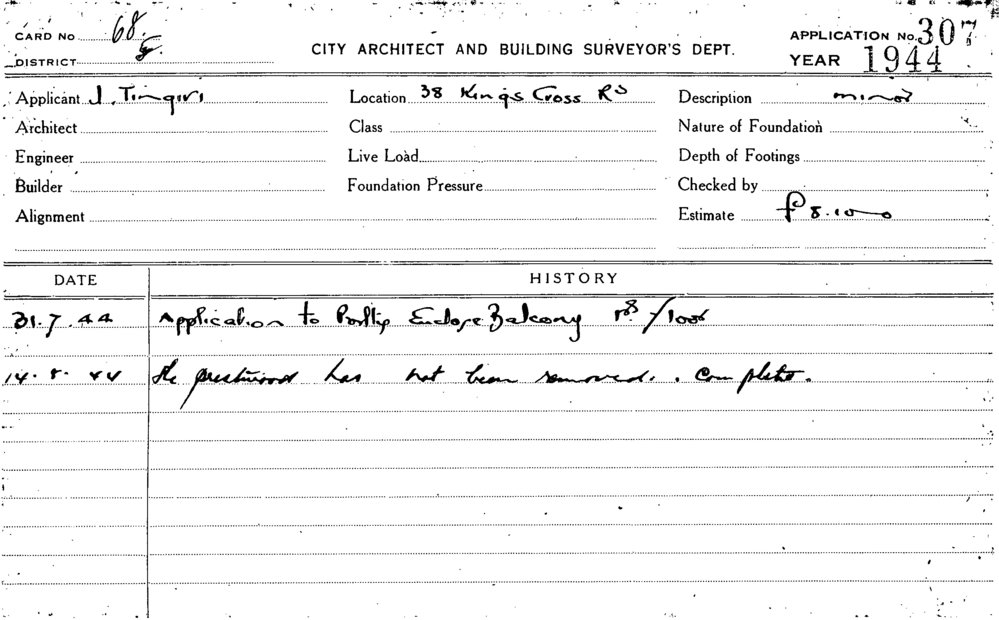 CARD NO 68.
DISTRICT
CITY ARCHITECT AND BUILDING SURVEYOR'S DEPT.
APPLICATION No. 307
YEAR 1944
Applicant J. Tingiri Location 38 Kings Cross Rd Description minor
Architect Class Nature of Foundation
Engineer Live Load Depth of Footings
Builder Foundation Pressure Checked by
Alignment Estimate £8.10-0
DATE HISTORY
31.7.44 Application to Enclose Balcony
14.8.44 the has not been removed. Complete.